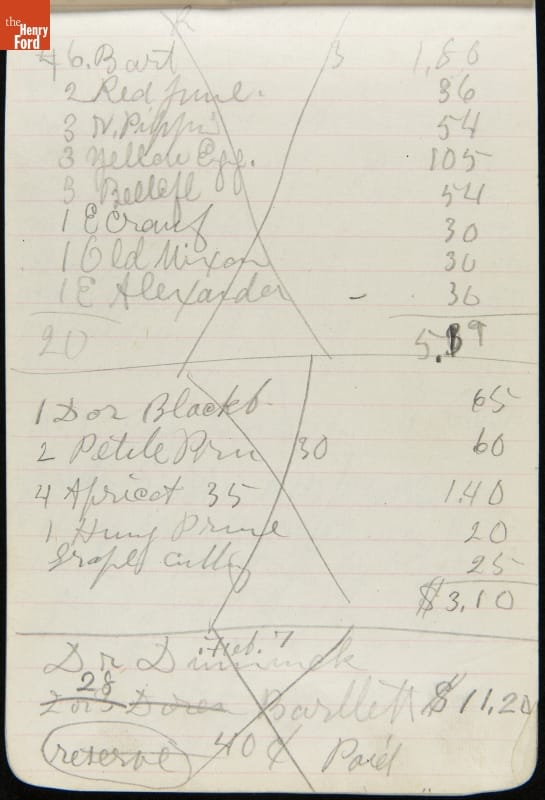 the
Henry
Ford
6. Bart 1,80
2 Red June. 36
3 N. Pippin 54
3 Yellow Egg. 105
3 Bellefl 54
1 E Crawf 30
1 Old Mixon 30
1 E Alexander - 30
20 5.19
1 Doz Blackb 65
2 Petite Pru 30 60
4 Apricot 35 1.40
1 Hung Prune 20
Grape cuttg 25
$3.10
Feb. 7
Dr Dimmick
28
Bartlett $11.20
reserve 40¢ Paid